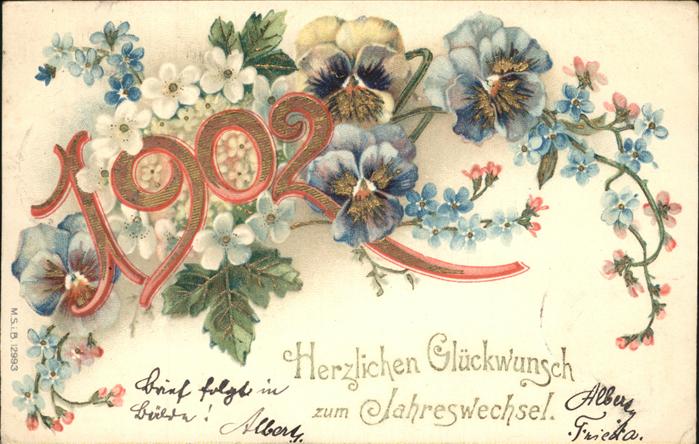 1902
M.S.i.B. 12993
Herzlichen Glückwunsch
zum Jahreswechsel.
Brief folgt in
Bälde! Albert
Albert
Frieda.